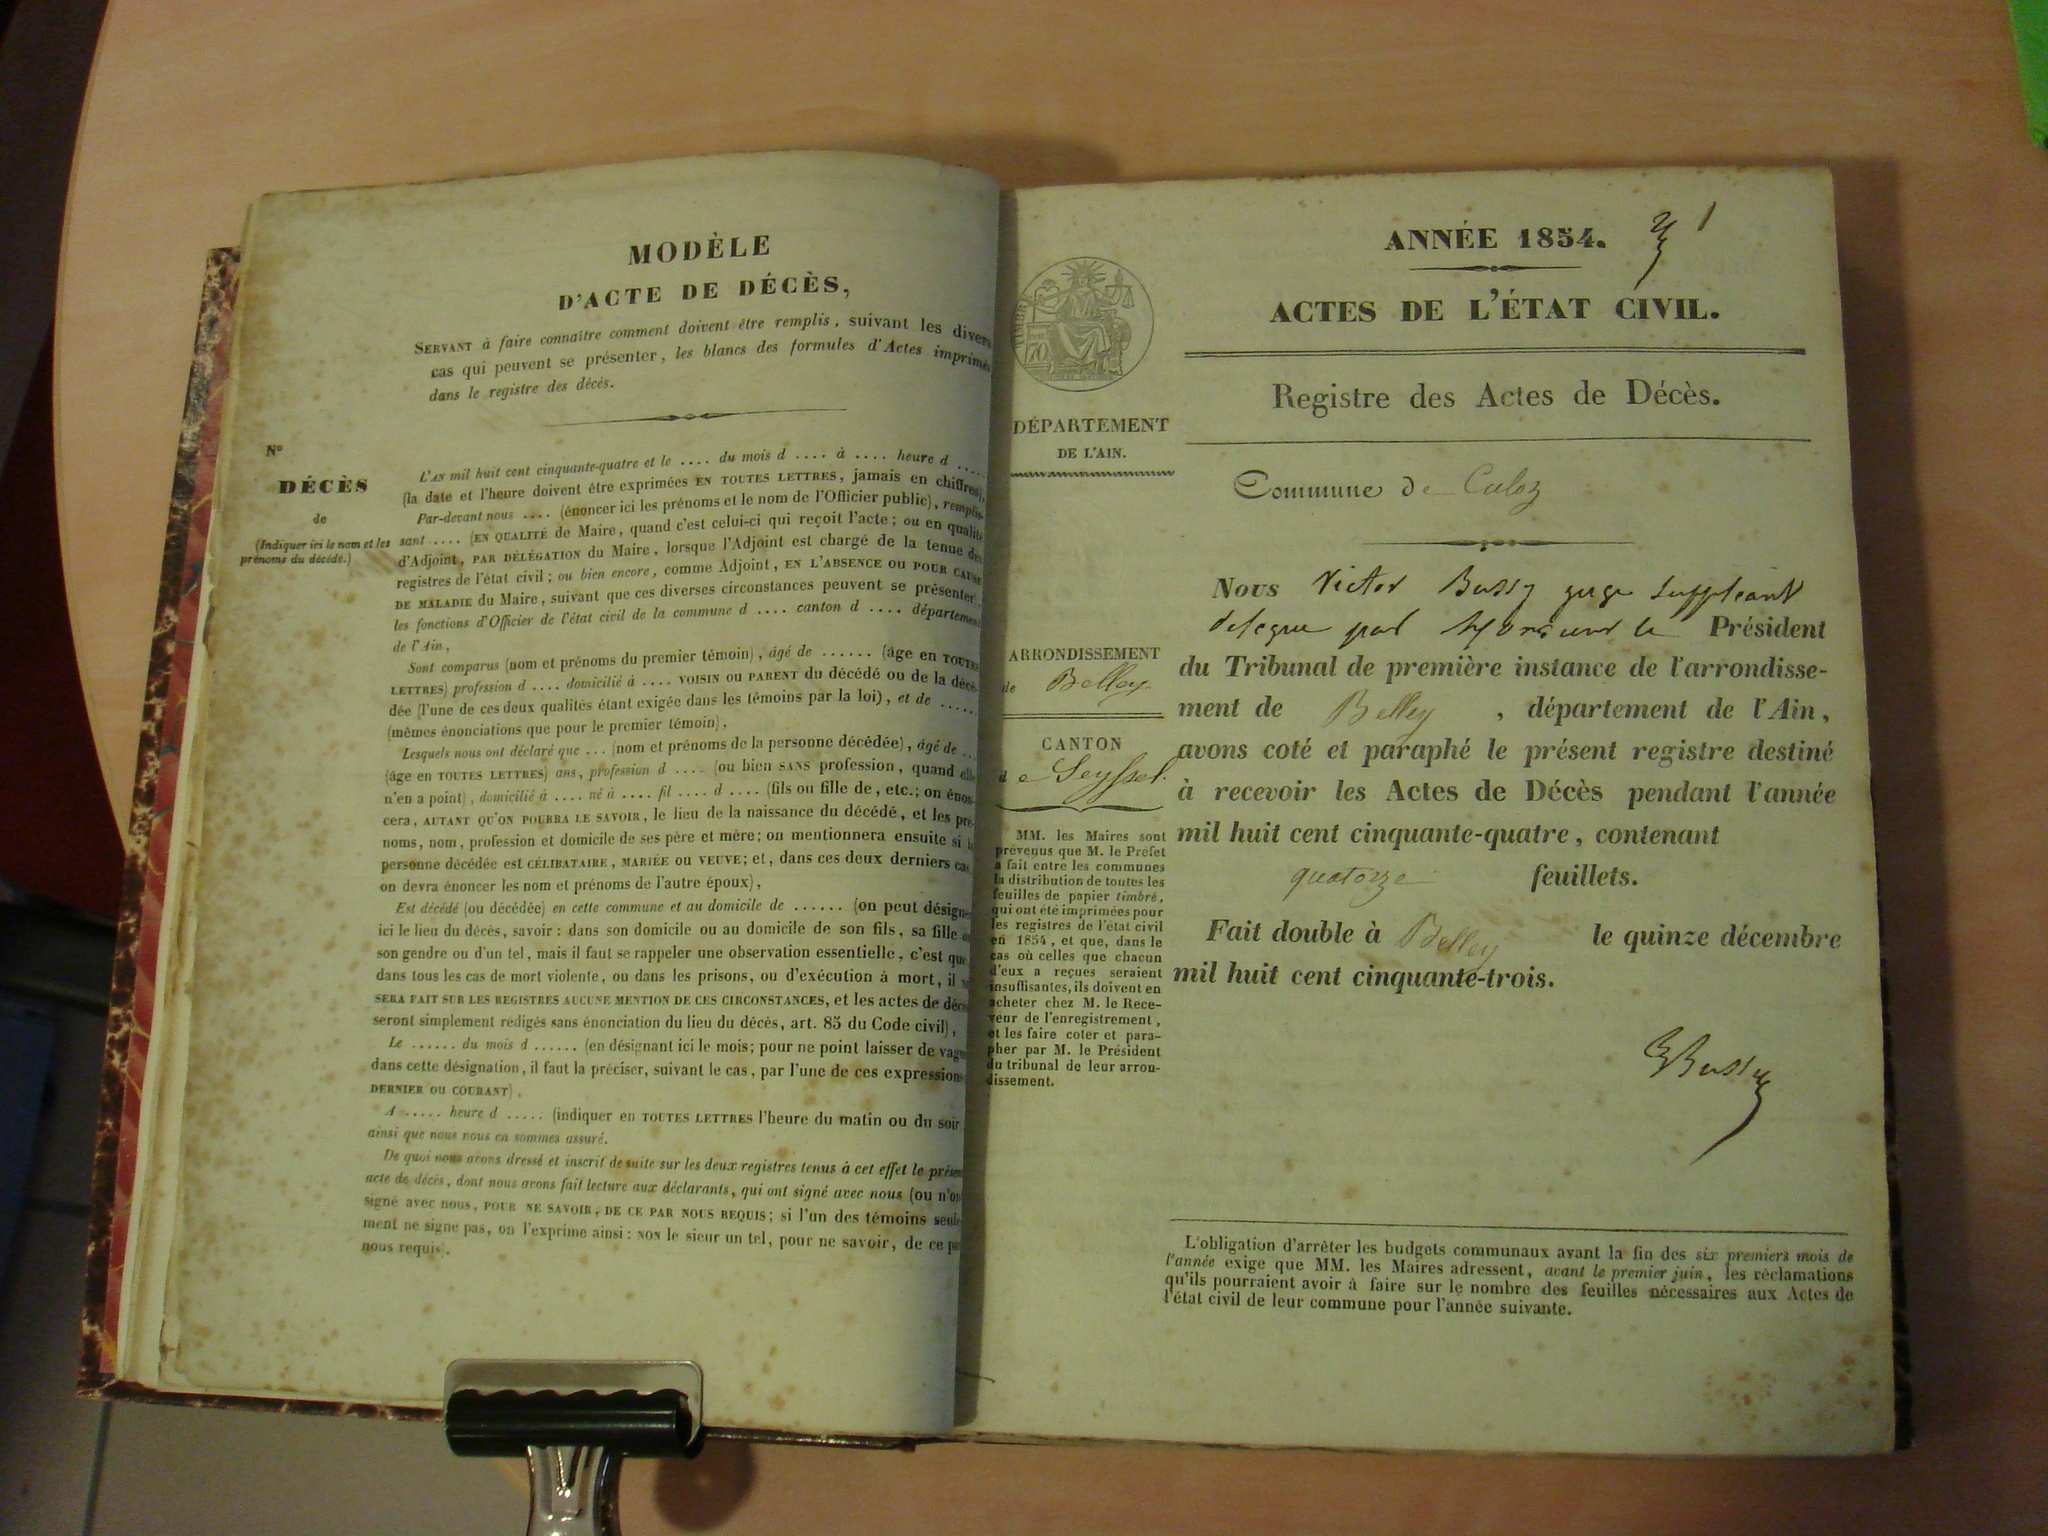 MODÈLE
D'ACTE DE DÉCÈS,
SERVANT à faire connaître comment doivent être remplis, suivant les divers
cas qui peuvent se présenter, les blancs des formules d'Actes imprimés
dans le registre des décès.
N°
DÉCÈS
de
(Indiquer ici le nom et les
prénoms du décédé.)
L'AN mil huit cent cinquante-quatre et le .... du mois d .... à .... heure d .....
(la date et l'heure doivent être exprimées EN TOUTES LETTRES, jamais en chiffres),
Par-devant nous .... (énoncer ici les prénoms et le nom de l'Officier public), remplis-
sant .... (EN QUALITÉ de Maire, quand c'est celui-ci qui reçoit l'acte; ou en qualité
d'Adjoint, PAR DÉLÉGATION du Maire, lorsque l'Adjoint est chargé de la tenue des
registres de l'état civil; ou bien encore, comme Adjoint, EN L'ABSENCE OU POUR CAUSE
DE MALADIE du Maire, suivant que ces diverses circonstances peuvent se présenter)
les fonctions d'Officier de l'état civil de la commune d .... canton d .... département
de l'Ain,
Sont comparus (nom et prénoms du premier témoin), âgé de ...... (âge en TOUTES
LETTRES) profession d .... domicilié à .... VOISIN OU PARENT du décédé ou de la décé-
dée (l'une de ces deux qualités étant exigée dans les témoins par la loi), et de ......
(mêmes énonciations que pour le premier témoin),
Lesquels nous ont déclaré que ... (nom et prénoms de la personne décédée), âgé de ...
(âge en TOUTES LETTRES) ans, profession d .... (ou bien SANS profession, quand elle
n'en a point), domicilié à .... né à .... fil .... d .... (fils ou fille de, etc.; on énon-
cera, AUTANT QU'ON POURRA LE SAVOIR, le lieu de la naissance du décédé, et les pré-
noms, nom, profession et domicile de ses père et mère; on mentionnera ensuite si la
personne décédée est CÉLIBATAIRE, MARIÉE OU VEUVE; et, dans ces deux derniers cas,
on devra énoncer les nom et prénoms de l'autre époux),
Est décédé (ou décédée) en cette commune et au domicile de ...... (on peut désigner
ici le lieu du décès, savoir: dans son domicile ou au domicile de son fils, sa fille ou
son gendre ou d'un tel, mais il faut se rappeler une observation essentielle, c'est que,
dans tous les cas de mort violente, ou dans les prisons, ou d'exécution à mort, il ne
SERA FAIT SUR LES REGISTRES AUCUNE MENTION DE CES CIRCONSTANCES, et les actes de décès
seront simplement rédigés sans énonciation du lieu du décès, art. 85 du Code civil),
Le ...... du mois d ...... (en désignant ici le mois; pour ne point laisser de vague
dans cette désignation, il faut la préciser, suivant le cas, par l'une de ces expressions
DERNIER OU COURANT),
A ..... heure d ..... (indiquer en TOUTES LETTRES l'heure du matin ou du soir
ainsi que nous nous en sommes assuré.
De quoi nous avons dressé et inscrit de suite sur les deux registres tenus à cet effet le présent
acte de décès, dont nous avons fait lecture aux déclarants, qui ont signé avec nous (ou n'ont
signé avec nous, POUR NE SAVOIR, DE CE PAR NOUS REQUIS; si l'un des témoins seule-
ment ne signe pas, on l'exprime ainsi: NON le sieur un tel, pour ne savoir, de ce par
nous requis).
ANNÉE 1854.
1
ACTES DE L'ÉTAT CIVIL.
Registre des Actes de Décès.
TIMBRE
70
DÉPARTEMENT
DE L'AIN.
Commune de Culoz
Nous Victor Bussy juge suppléant
delegue par Monsieur le Président
du Tribunal de première instance de l'arrondisse-
ment de Belley, département de l'Ain,
avons coté et paraphé le présent registre destiné
à recevoir les Actes de Décès pendant l'année
mil huit cent cinquante-quatre, contenant
quatorze feuillets.
Fait double à Belley le quinze décembre
mil huit cent cinquante-trois.
Bussy
ARRONDISSEMENT
de Belley
CANTON
de Seyssel.
MM. les Maires sont
prévenus que M. le Préfet
a fait entre les communes
la distribution de toutes les
feuilles de papier timbré,
qui ont été imprimées pour
les registres de l'état civil
en 1854, et que, dans le
cas où celles que chacun
d'eux a reçues seraient
insuffisantes, ils doivent en
acheter chez M. le Rece-
veur de l'enregistrement,
et les faire coter et para-
pher par M. le Président
du tribunal de leur arron-
dissement.
L'obligation d'arrêter les budgets communaux avant la fin des six premiers mois de
l'année exige que MM. les Maires adressent, avant le premier juin, les réclamations
qu'ils pourraient avoir à faire sur le nombre des feuilles nécessaires aux Actes de
l'état civil de leur commune pour l'année suivante.